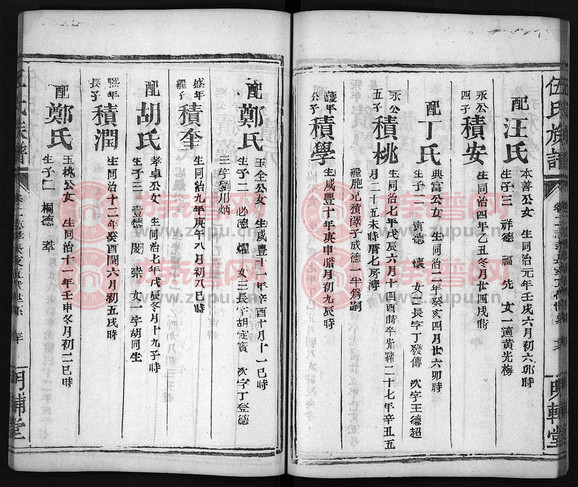 伍氏族譜
明輔堂
配汪氏
本善公女 生同治元年壬戌六月初六卯時
生子三 祥德 福 先 女一適黃光梅
永公四子
積安
生同治四年乙丑冬月廿四戌時
配丁氏
典富公女 生同治二年癸亥四月廿六卯時
生子二 女三長字丁發傳 次字王德超
永公五子
積桃
生同治七年戊辰六月十四酉時卒光緒二十七年辛丑五
月二十五未時厝七房灣
積學
生咸豐十年庚申腊月初九辰時
繼胞兄積鐸子咸德一半為嗣
配鄭氏
玉全公女 生咸豐十一年辛酉十月十一巳時
生子二 必德 耀 女三長字胡定賓 次字丁登德
三字劉川炳
盛年
積奎
生同治九年庚午八月初八巳時
配胡氏
孝卓公女 生同治七年戊辰冬月十九子時
生子三 壹德 閣 崇 女二長字胡同生
長子
積潤
生同治十二年癸酉閏六月初五戌時
配鄭氏
玉桃公女 生同治十一年壬申冬月初二巳時
生子二 桐德 萃
明輔堂